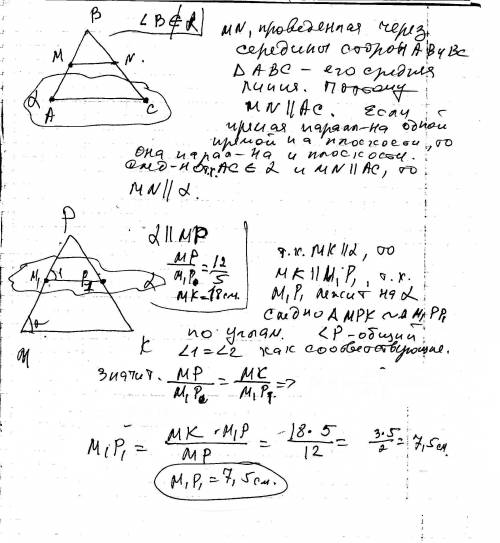 B
∠B∉α
MN, проведенная через
середины сторон AB и BC
M N.
△ABC – его средняя
линия. Поэтому
α
A C
MN || AC. Если
прямая парал-на одной
прямой на плоскости, то
она парал-на и плоскости.
след-но т.к. AC ∈ α и MN || AC, то
MN || α.
P
α || MP
MP/M₁P = 12/5
MK = 18 см.
M₁ 1 P₁ α
2
M K
т.к. MK || α, то
MK || M₁P₁, т.к.
M₁P₁ лежит на α
следно △MPK ~ △M₁PP₁
по углам. ∠P – общий
∠1 = ∠2 как соответствующие.
Значит. MP/M₁P = MK/M₁P₁ =>
M₁P₁ = MK · M₁P / MP = 18 · 5 / 12 = 3·5/2 = 7,5 см.
M₁P₁ = 7,5 см.